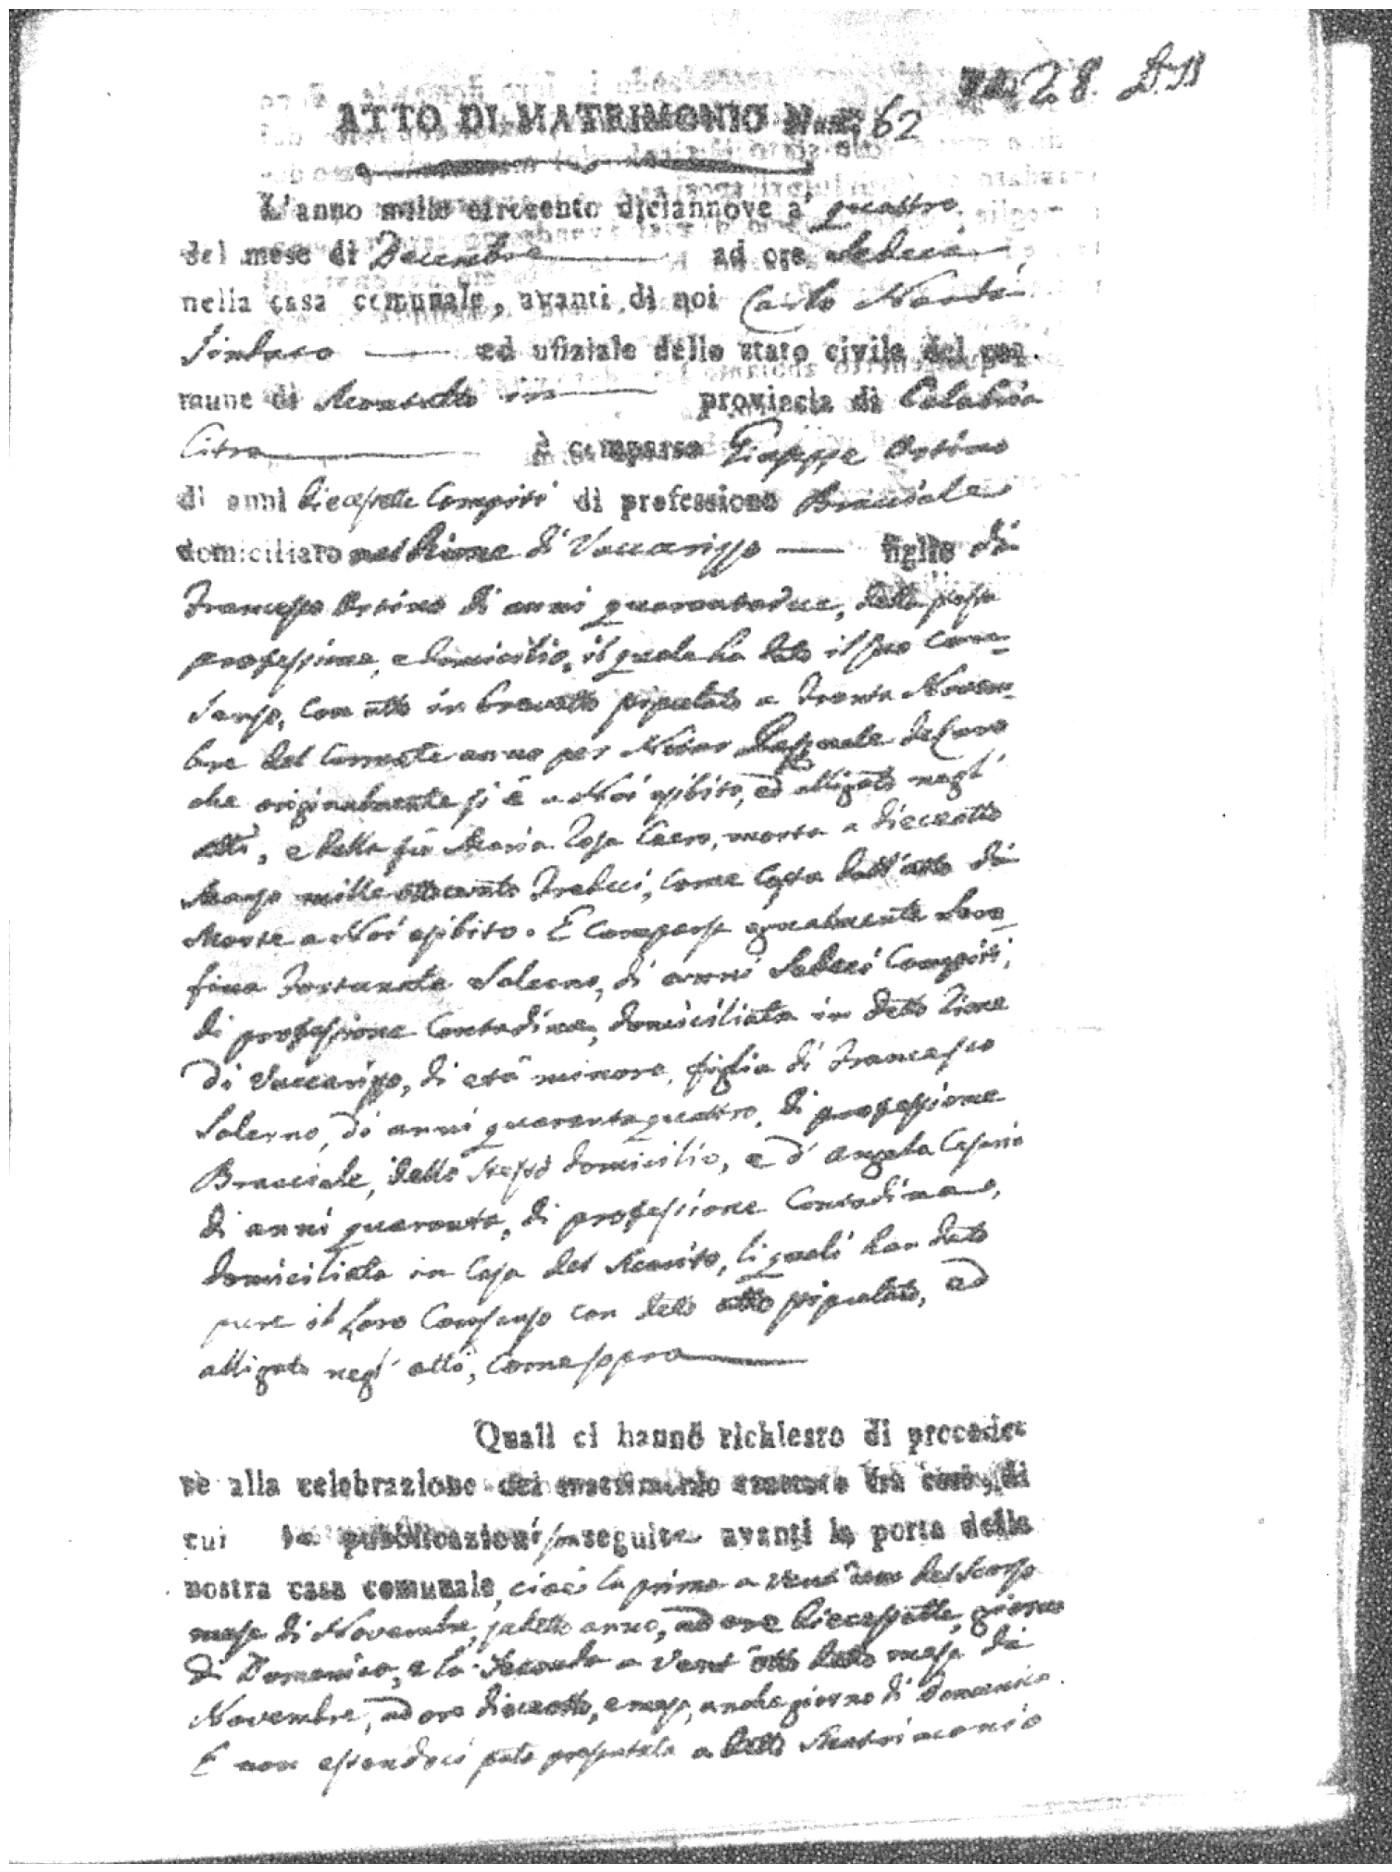 28.
ATTO DI MATRIMONIO Num. 62
L'anno mille ottocento diciannove a' quattro
del mese di Decembre ad ore Sedeci
nella casa comunale, avanti di noi Carlo Nardi
Sindaco ed ufiziale dello stato civile del co-
mune di Montalto in provincia di Calabria
Citra è comparso Giuseppe Ortino
di anni Diecesette Compiti di professione Bracciale
domiciliato nel Rione di Vaccarizzo figlio di
Francesco Ortino di anni quarantadue, della stessa
professione, e domicilio, il quale ha dato il suo Con-
senso, con atto in brevetto stipulato a trenta Novem-
bre del Corrente anno per Notar Pasquale de Caro
che originalmente si è a Noi esibito, ed alligato negl'
atti, e della fù Maria Rosa Caero, morta a dieceotto
Marzo mille ottocento Tredeci, come costa dall'atto di
Morte a Noi esibito. E Comparsa egualmente Sera-
fina Fortunata Salerno, di anni Sedeci Compiti,
di professione Contadina, domiciliata in detto Rione
di Vaccarizzo, di età minore, figlia di Francesco
Salerno, di anni quarantaquattro, di professione
Bracciale, dello stesso domicilio, e d' Angela Cesario
di anni quaranta, di professione Contadina,
domiciliata in Casa del Marito, li quali han dato
pure il loro Consenso con detto atto stipulato, ed
alligato negl' atti, come sopra
Quali ci hanno richiesto di procede-
re alla celebrazione del matrimonio tra essi, di
cui le pubblicazioni son seguite avanti la porta della
nostra casa comunale, cioè la prima a vent'uno del scorso
mese di Novembre, sudetto anno, ad ore Diecessette, giorno
di Domenica, e la Seconda a vent'otto detto mese di
Novembre, ad ore dieceotto, e mezo, anche giorno di Domenica
E non essendoci stata presentata a detto Matrimonio